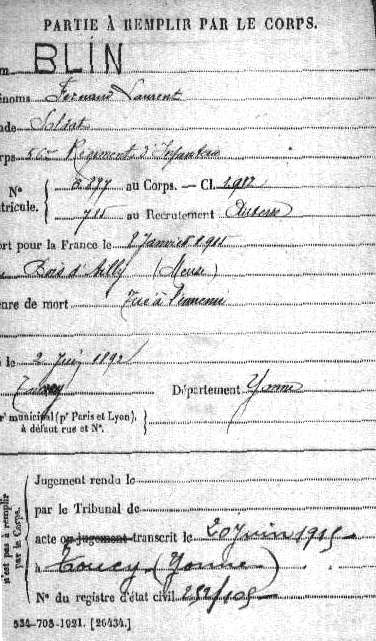 PARTIE À REMPLIR PAR LE CORPS.
BLIN
Fernand Laurent
Soldat
Régiment d'Infanterie
Nº 5.297 au Corps. — Cl. 1912
715 au Recrutement Auxerre
ort pour la France le Janvier 1915
Bois d'Ailly (Meuse)
nre de mort Tué à l'ennemi
le 2 Juin 1892
Toucy Département Yonne
municipal (pr Paris et Lyon),
à défaut rue et Nº.
Jugement rendu le
par le Tribunal de
acte ou jugement transcrit le 20 juin 1915
à Toucy (Yonne)
Nº du registre d'état civil
534-708-1921. [26434.]
n'est pas à remplir
par le Corps.